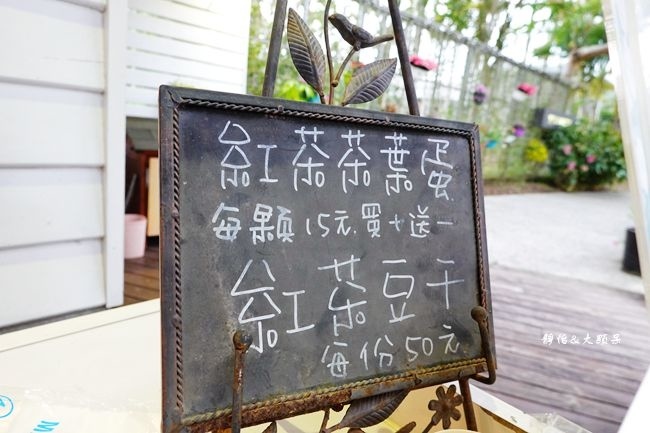 紅茶茶葉蛋
每顆15元.買十送一
紅茶豆干
每份50元
靜怡&大顆呆